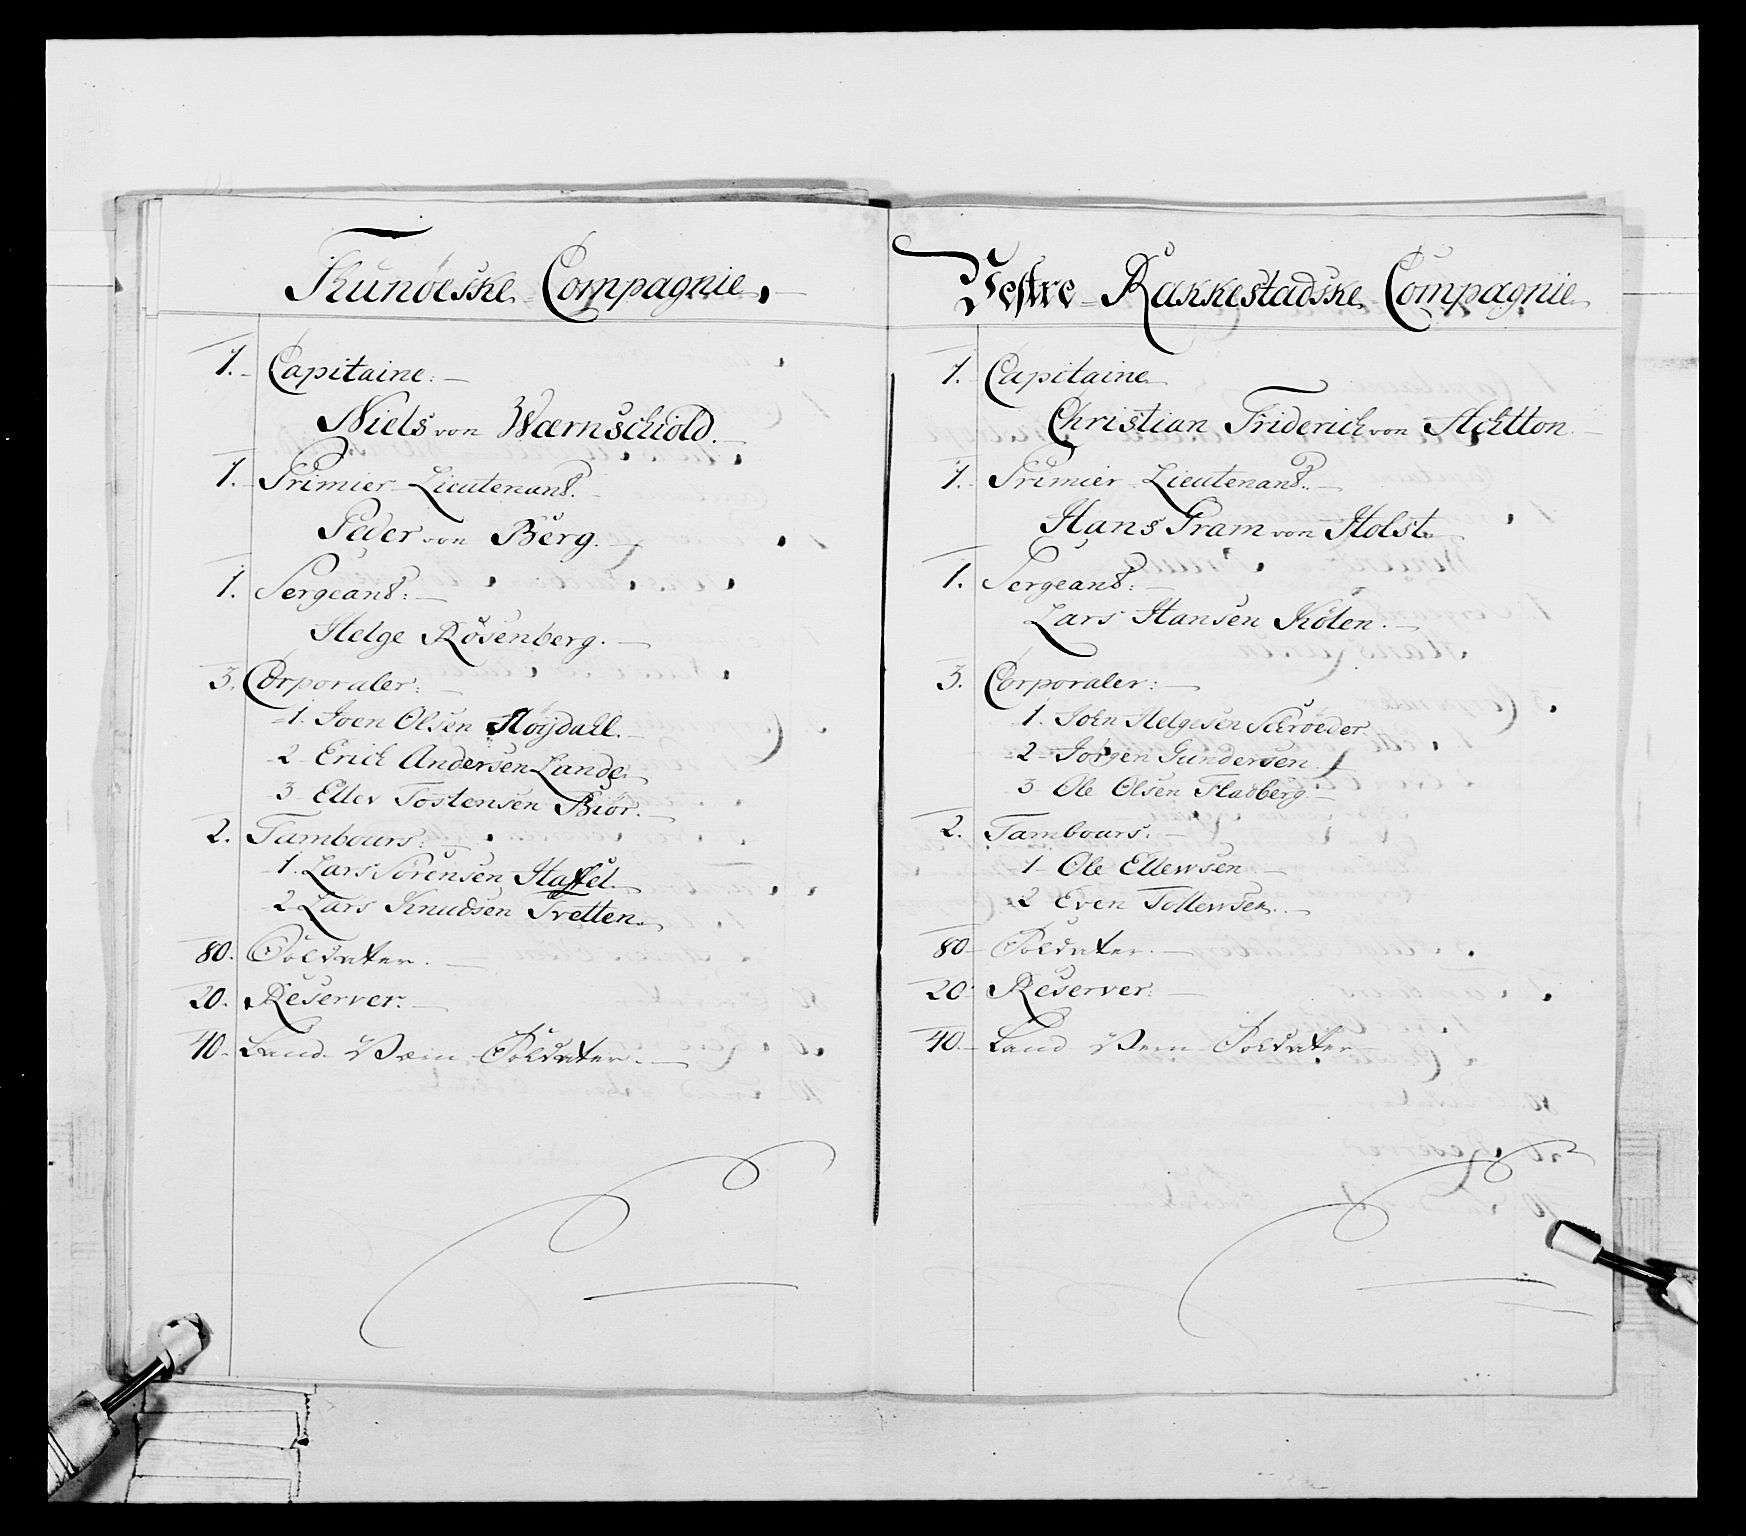 Thunöeske Compagnie.
1. Capitaine:
Niels von Wærnschiold.
1. Primier Lieutenant.
Peder von Berg.
1. Sergeant:
Helge Rosenberg.
3. Corporaler:
1. Joen Olsen Höijdahl.
2 Erich Andersen Lande.
3 Ellev Tostensen Biör.
2. Tambours:
1. Lars Sörensen Haffel.
2 Lars Knudsen Tvetten.
80. Soldater.
20. Reserver.
40. Land Værn Soldater.
Vestre Rakkestadske Compagnie
1. Capitaine
Christian Friderich von Achtton
1. Primier Lieutenant.
Hans Gram von Holst.
1. Sergeant:
Lars Hansen Kölen.
3. Corporaler:
1. John Helgesen Schröeder
2 Jörgen Gundersen
3 Ole Olsen Fladberg
2. Tambours.
1 Ole Ellewsen
2 Even Tollewsen.
80 Soldater.
20 Reserver.
40. Land Værn Soldater